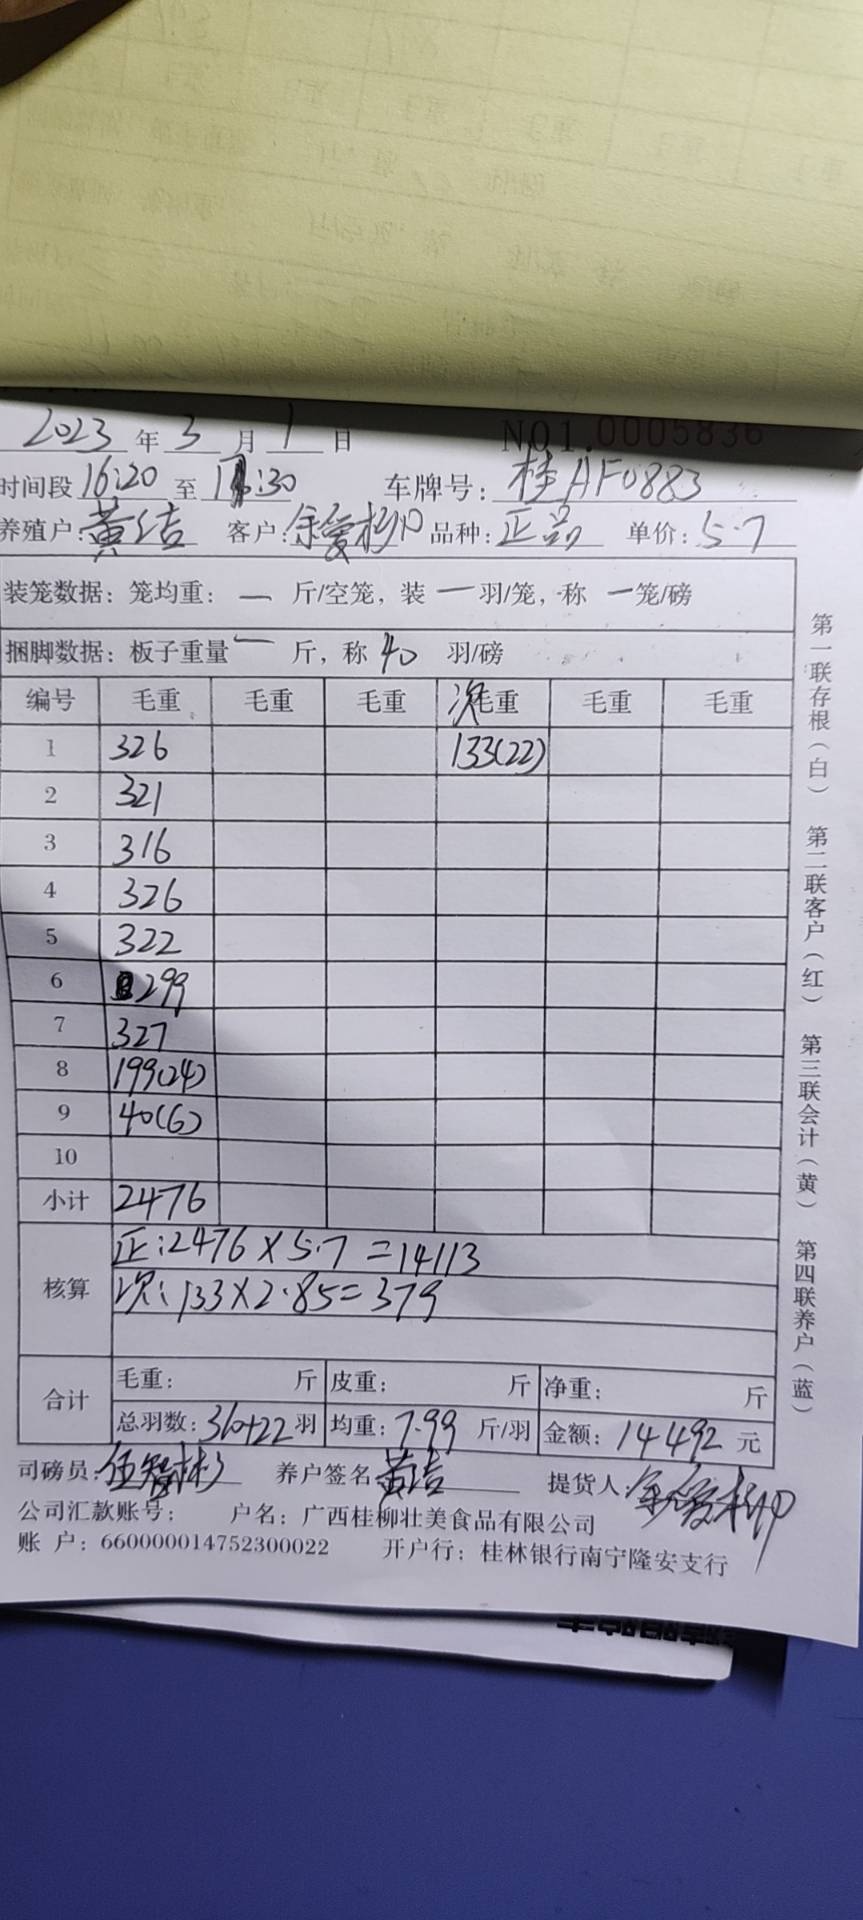 2023年3月1日 NO1.0005836
时间段16:20至17:30 车牌号:桂AF0883
养殖户:黄结 客户:余爱柳 品种:正品 单价:5.7
装笼数据:笼均重:一斤/空笼,装一羽/笼,称一笼/磅
捆脚数据:板子重量一斤,称40羽/磅
编号 毛重 毛重 毛重 次毛重 毛重 毛重
1 326 133(22)
2 321
3 316
4 326
5 322
6 299
7 327
8 199(24)
9 40(6)
10
小计 2476
核算 正:2476×5.7=14113
次:133×2.85=379
合计 毛重: 斤 皮重: 斤 净重: 斤
总羽数:310+22羽 均重:7.99斤/羽 金额:14492元
司磅员: 养户签名:黄结 提货人:余爱柳
公司汇款账号: 户名:广西桂柳壮美食品有限公司
账户:660000014752300022 开户行:桂林银行南宁隆安支行
第一联存根(白) 第二联客户(红) 第三联会计(黄) 第四联养户(蓝)